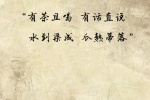 “有茶且喝 有话直说
水到渠成 瓜熟蒂落”